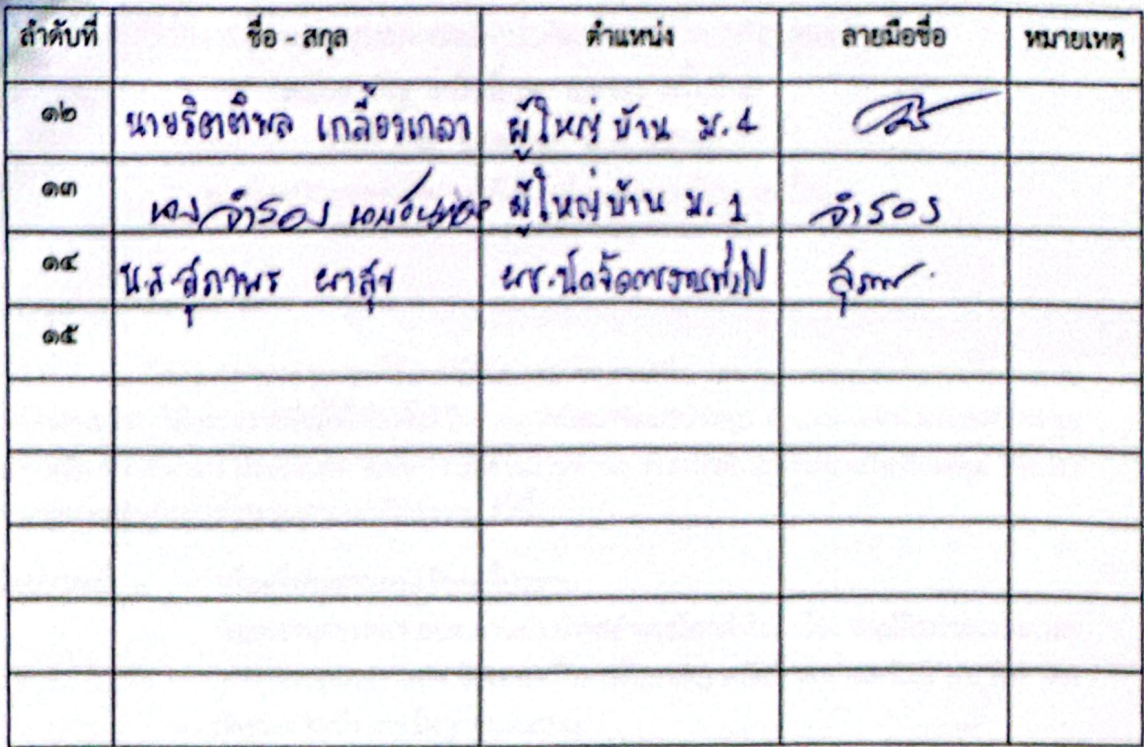 ลำดับที่ ชื่อ - สกุล ตำแหน่ง ลายมือชื่อ หมายเหตุ
๑๒ นายธิตาติพล เกลี้ยวเกลา ผู้ใหญ่บ้าน ม.4
๑๓ นางจำรอง ผู้ใหญ่บ้าน ม.1 จำรอง
๑๔ น.ส.สุภาพร ผาสุข ผช.นักจัดการงานทั่วไป
๑๕